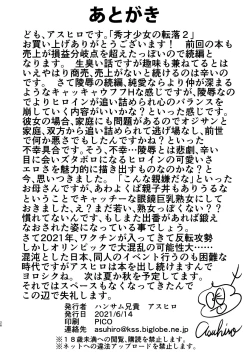 あとがき
ども、アスヒロです。「秀才少女の転落2」
お買い上げありがとうございます! 前回の本も
売上が損益分岐点を超えたっぽいので続編と
なります。 生臭い話ですが趣味も兼ねてるとは
いえやはり商売、売上がないと続けるのは辛いの
です。 さて陵辱の続編、純愛ならより仲が深まる
ようなキャッキャウフフIN感じですが、陵辱なの
でよりヒロインが追い詰められ心のバランスを
崩していく内容がいいかな?といった感じです。
彼女の場合、家庭にも問題があるのでオオジサンと
家庭、双方から追い詰められて逃げ場なし、前世
で何か悪さでもしたんですかね?といった
不幸具合です。そう、不幸…陵辱とは悲劇、辛い
目に会いズタボロになるヒロインの可愛いさ
エロさを魅力的に描き出すものなのかな?と
今、思いつきました。「こんな親嫌だな」といった
お母さんですが、あわよくば親子丼もありうるな
ということでキャッチーな眼鏡巨乳熟女にして
おきました、え?まだ若い、熟女っぽくない??
慣れてないんです、もしまた出番があれば鍛え
なおされた姿になっている事でしょう。
さて2021年、ワクチンが入ってきて反転攻勢
しかしオリンピックで大混乱の可能性大……
混沌とした日本、同人のイベント行うのも困難な
時代ですがアスヒロは本を出し続けますんで
ヨロシクねっ。 次は夏か秋を予定してます。
それではスペースもなくなってきたんで
この辺で失礼します。
発行者 ハンサム兄貴 アスヒロ
発行日 2021/6/14
印刷 PICO
連絡先 asuhiro@kss.biglobe.ne.jp
※18歳未満への閲覧、購読を禁止します。
※ネットへの違法アップロードを禁止します。
Asuhiro